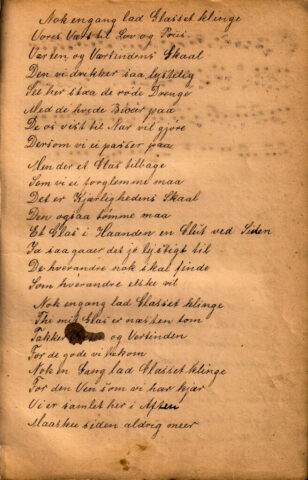 Nok engang lad Glasset klinge
Vores Vært til Lov og Priis
Værten og Værtindens Skaal
Den vi drikker saa lystelig
See her staa de røde Drenge
Med de hvide Bixer paa
De os vist til Nar vil gjøre
Dersom vi ei passer paa
Men der et Glas tilbage
Som vi ei forglemme maa
Det er Kjærlighedens Skaal
Den ogsaa tømme maa
Et Glas i Haanden en Glut ved Siden
Ja saa gaaer det jo lystigt til
De hverandre nok skal finde
Som hverandre elske vil
Nok engang lad Glasset klinge
Thi mit Glas er næsten tom
Takker og Vertinden
For de gode vi bekom
Nok en Gang lad Glasset klinge
For den Ven som vi har kjær
Vi er samlet her i Aften
Maaskee siden aldrig meer